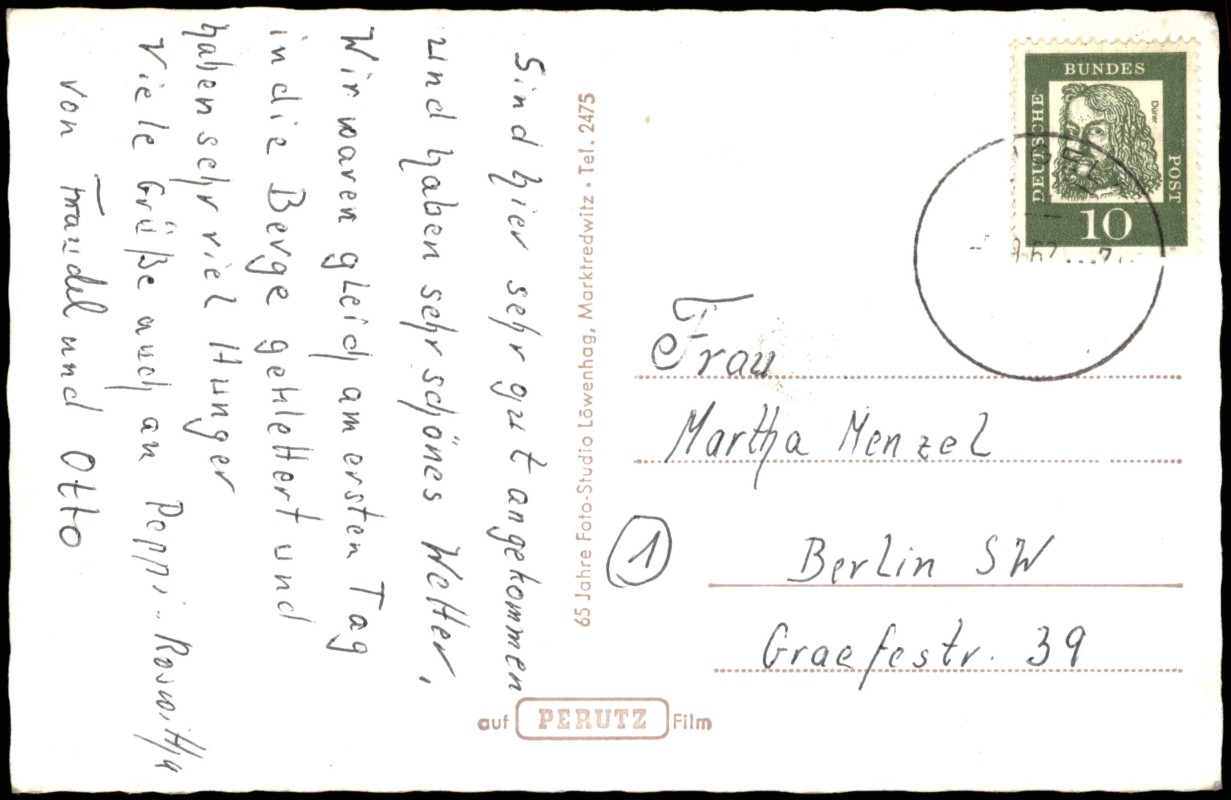 Sind hier sehr gut angekommen
und haben sehr schönes Wetter.
Wir waren gleich am ersten Tag
in die Berge geklettert und
haben sehr viel Hunger
Viele Grüße auch an Peppi - Roswitha
von Traudel und Otto
65 Jahre Foto-Studio Löwenhag, Marktredwitz • Tel. 2475
auf PERUTZ Film
DEUTSCHE BUNDES POST
Dürer
10
Frau
Martha Menzel
1
Berlin SW
Graefestr. 39